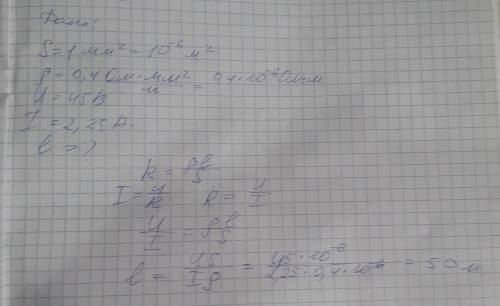 Дано:
S = 1 мм² = 10⁻⁶ м²
ρ = 0,4 Ом·мм²/м = 0,4·10⁻⁶ Ом·м
U = 45 В
I = 2,25 А.
l = ?
R = ρl/S
I = U/R R = U/I
U/I = ρ l/S
l = US/Iρ = 45·10⁻⁶/2,25·0,4·10⁻⁶ = 50 м